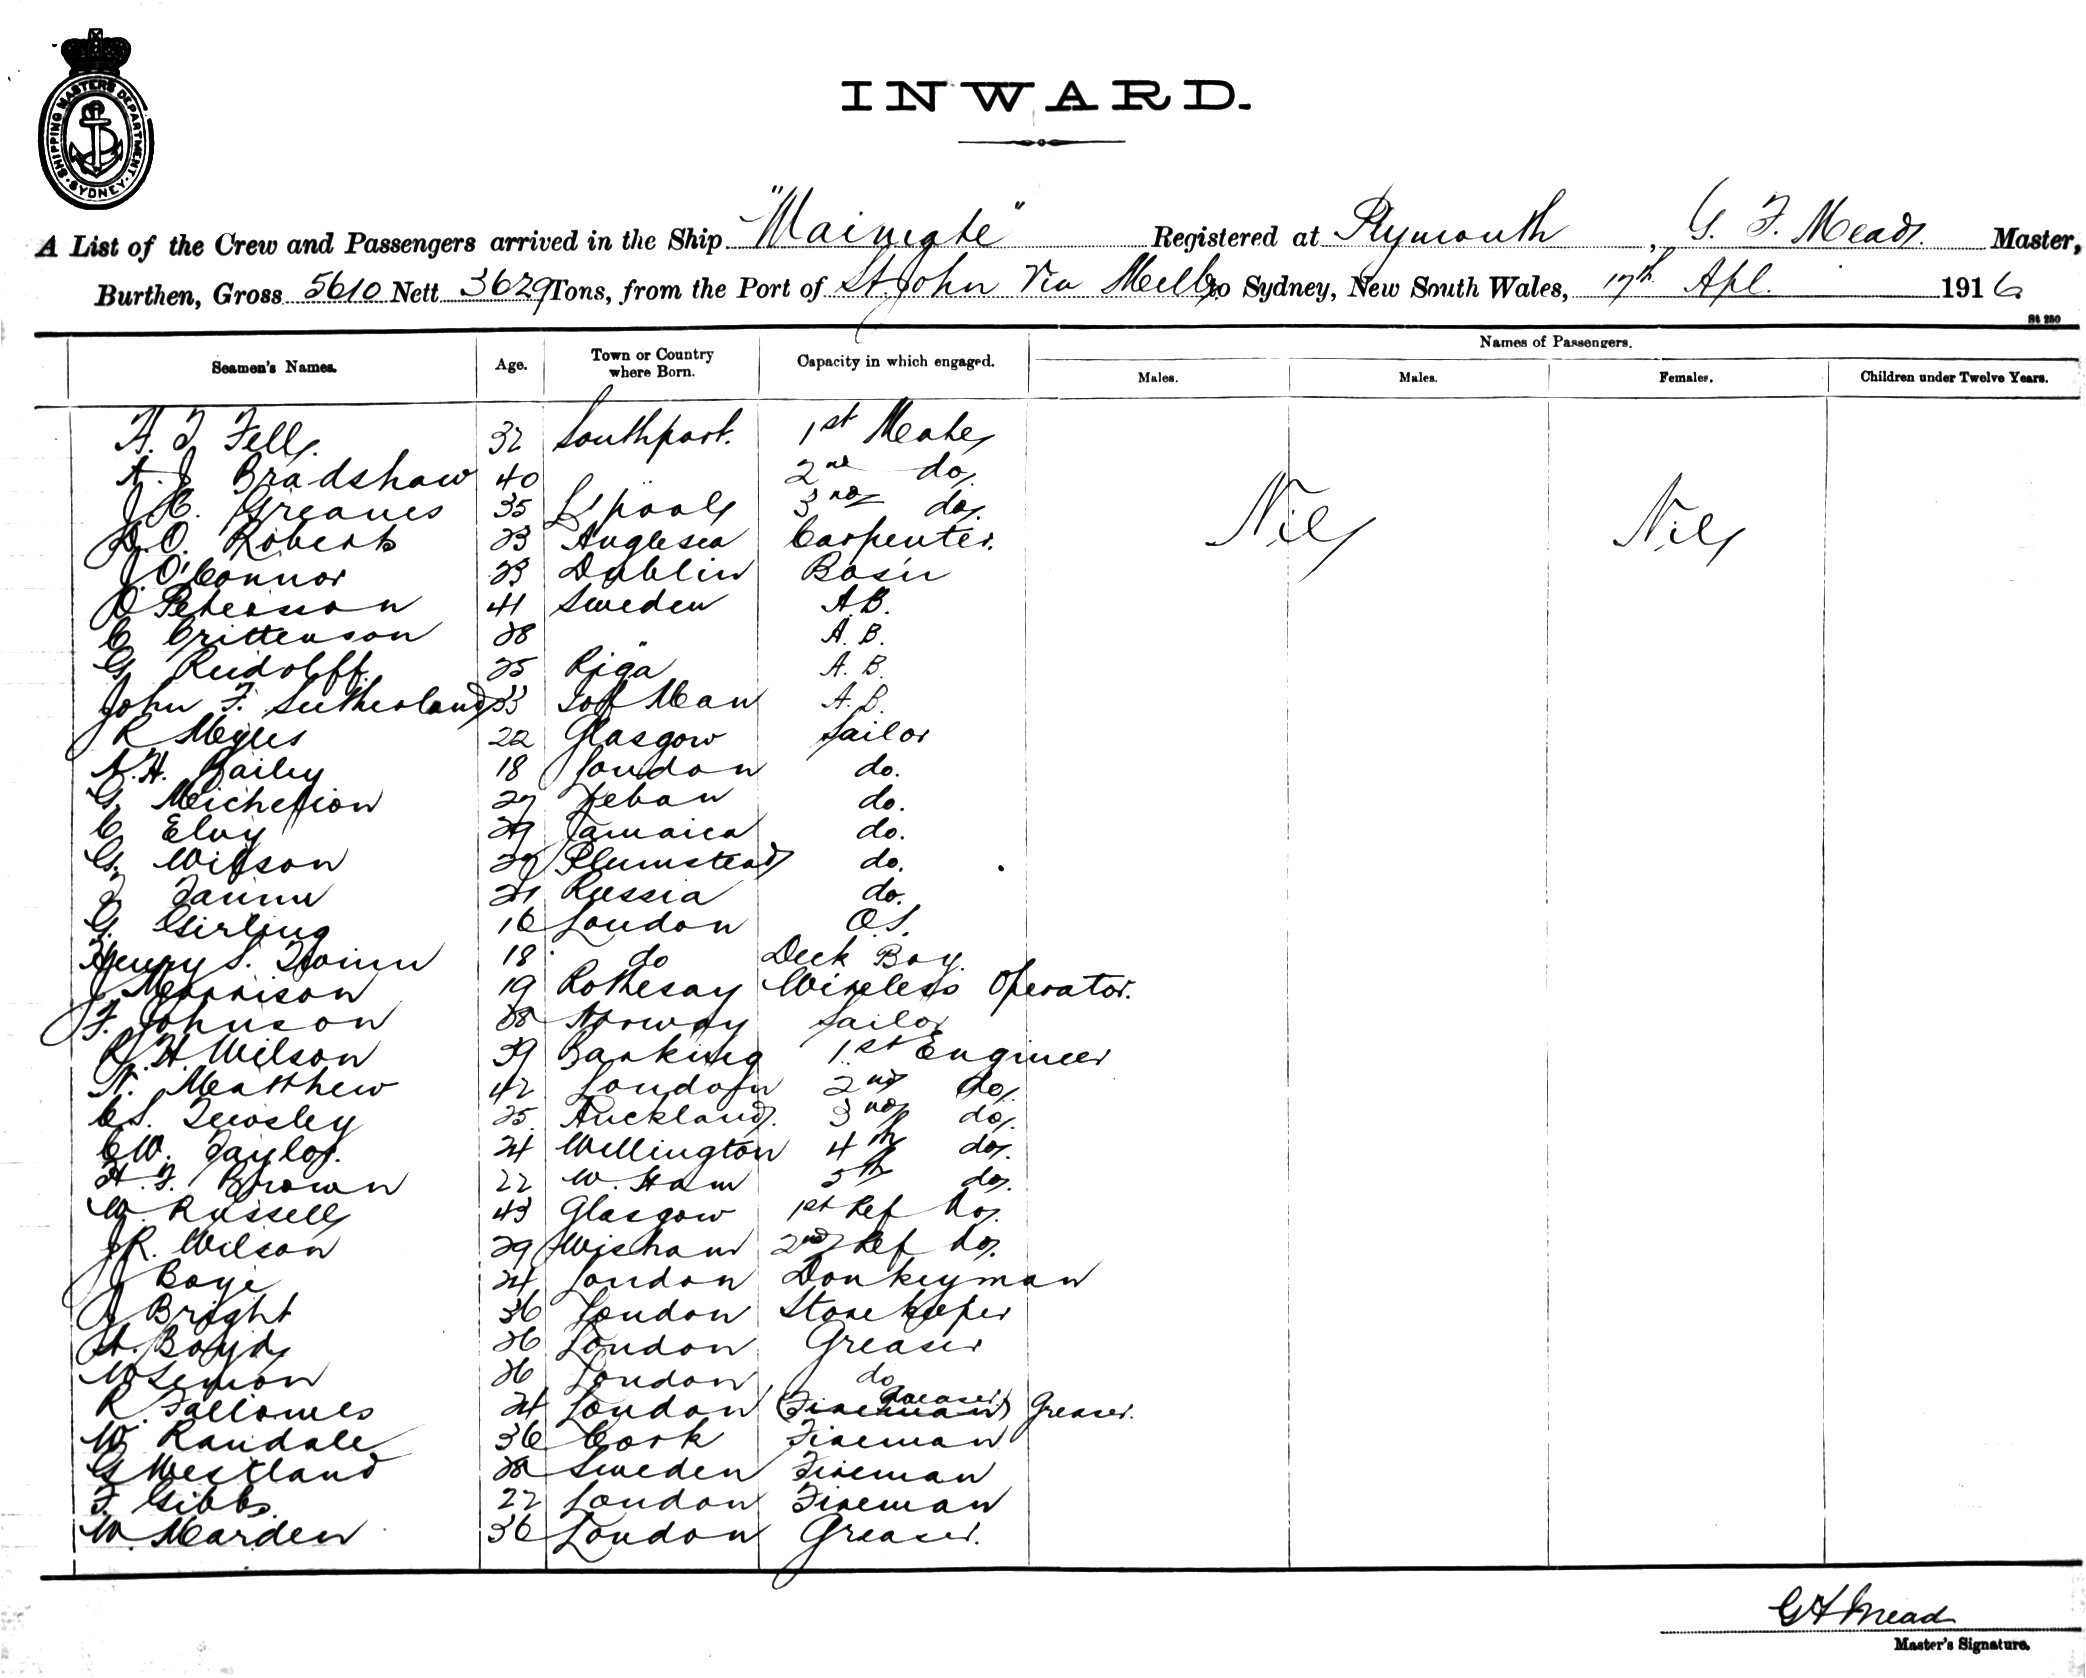 SHIPPING MASTERS DEPARTMENT. SYDNEY
INWARD.
A List of the Crew and Passengers arrived in the Ship "Waimate" Registered at Plymouth, G. F. Mead Master,
Burthen, Gross 5610 Nett 3629 Tons, from the Port of St. John Via Melb to Sydney, New South Wales, 17th Apl. 1916
St 250
Seamen's Names. Age. Town or Country where Born. Capacity in which engaged. Names of Passengers.
Males. Males. Females. Children under Twelve Years.
Fell 32 Southport. 1st Mate
A. J. Bradshaw 40 2nd do
Greaves 35 L'pool 3rd do
D. O. Roberts 23 Anglesea Carpenter
J O'Connor 23 Dublin Bosn
Nil Nil
O. Petersson 41 Sweden A.B.
C Crittenson 28 " A.B.
G Rudolff 25 Riga A.B.
John F. Sutherland 33 I of Man A.B.
R Meyus 22 Glasgow Sailor
Bailey 18 London do.
G. 27 do.
C Elvy 29 Jamaica do.
G. Wilson 29 Plumstead do.
21 Russia do.
G. Girling 16 London O.S.
Henry S. 18 do Deck Boy.
J Morrison 19 Rothesay Wireless Operator.
F. Johnson 28 Norway Sailor
R. H. Wilson 39 Barking 1st Engineer
Matthew 42 London 2nd do.
C S. Tewsley 25 Auckland 3rd do.
C W. Taylor. 24 Wellington 4th do.
H. F. Brown 22 W. Ham 5th do.
W. Russell 43 Glasgow 1st Ref do.
J R. Wilson 29 Wishaw 2nd Ref do.
J Boyé 24 London Donkeyman
J Bright 36 London Storekeeper
A. Boyd 26 London Greaser
W Lemon 26 London do
R. Fallowes 24 London (Fireman) Greaser Greaser.
W. Randale 36 Cork Fireman
G Westland 28 Sweden Fireman
F. Gibbs. 22 London Fireman
W. Marden 36 London Greaser.
G F Mead
Master's Signature.